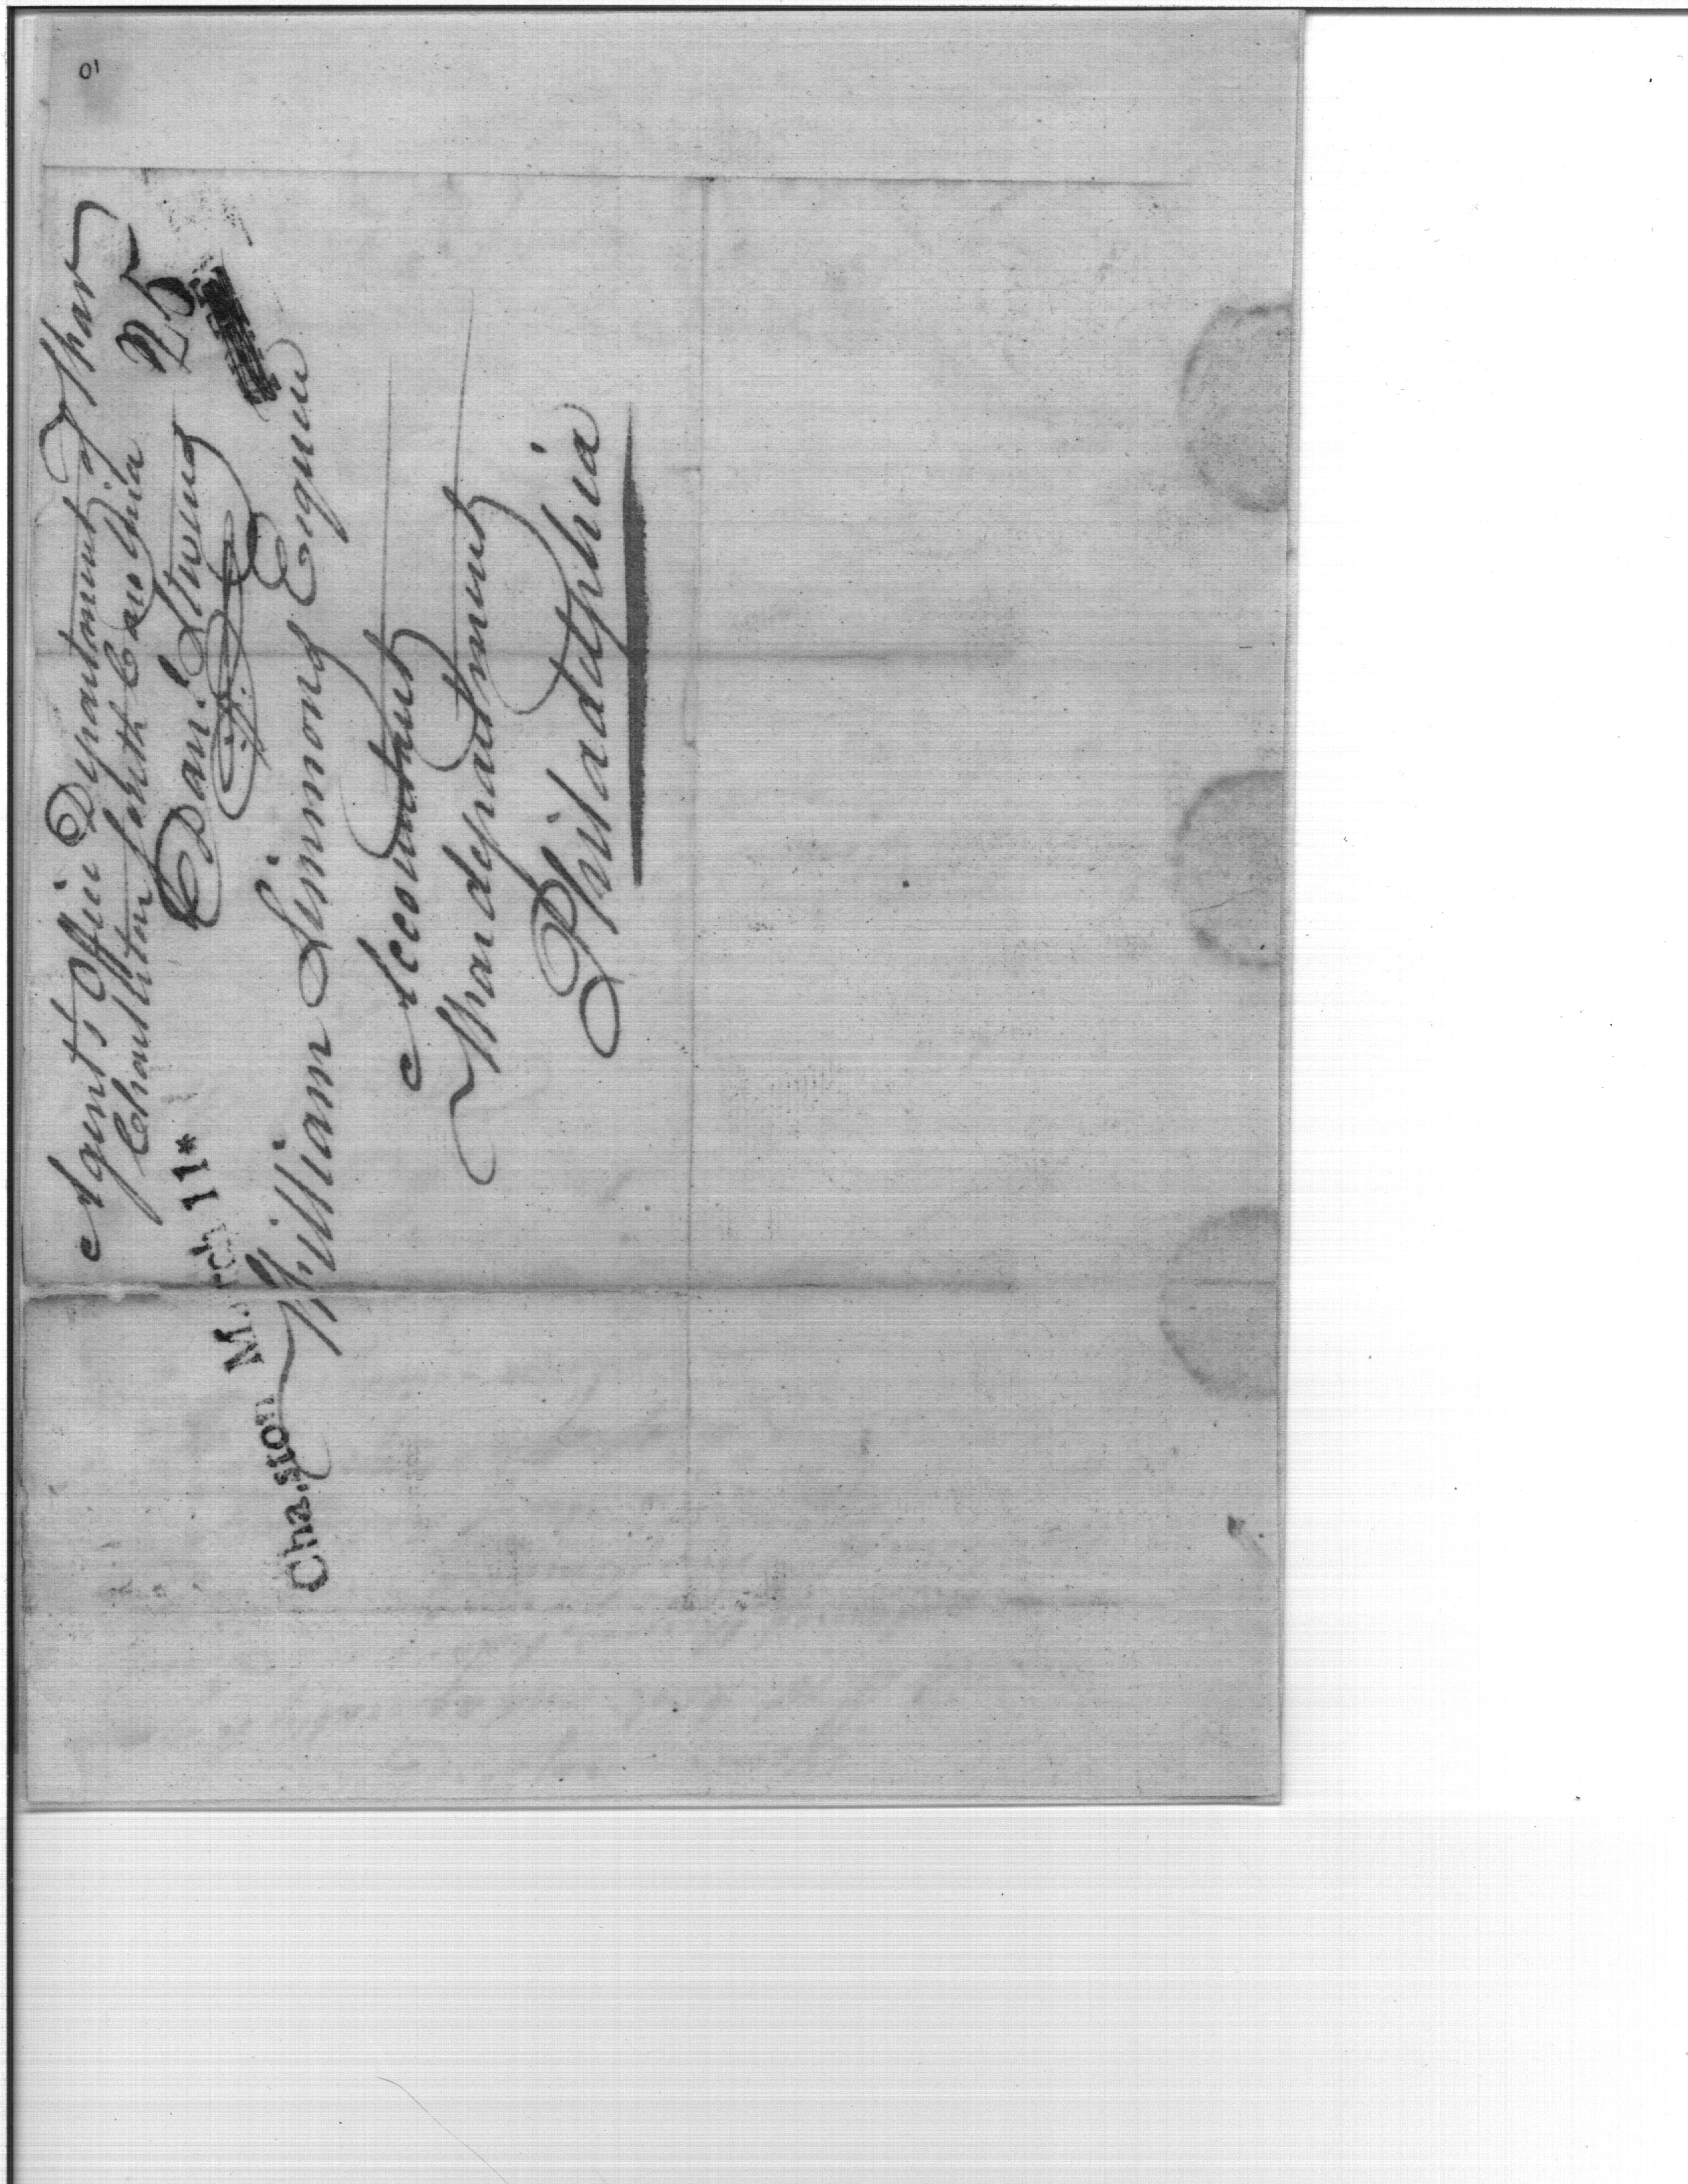 10
Agent's Office Department of War
Charleston South Carolina
Danl. Stevens
25
Cha..ston March 11*
William Simmons Esquire
Accountant
War department
Philadelphia